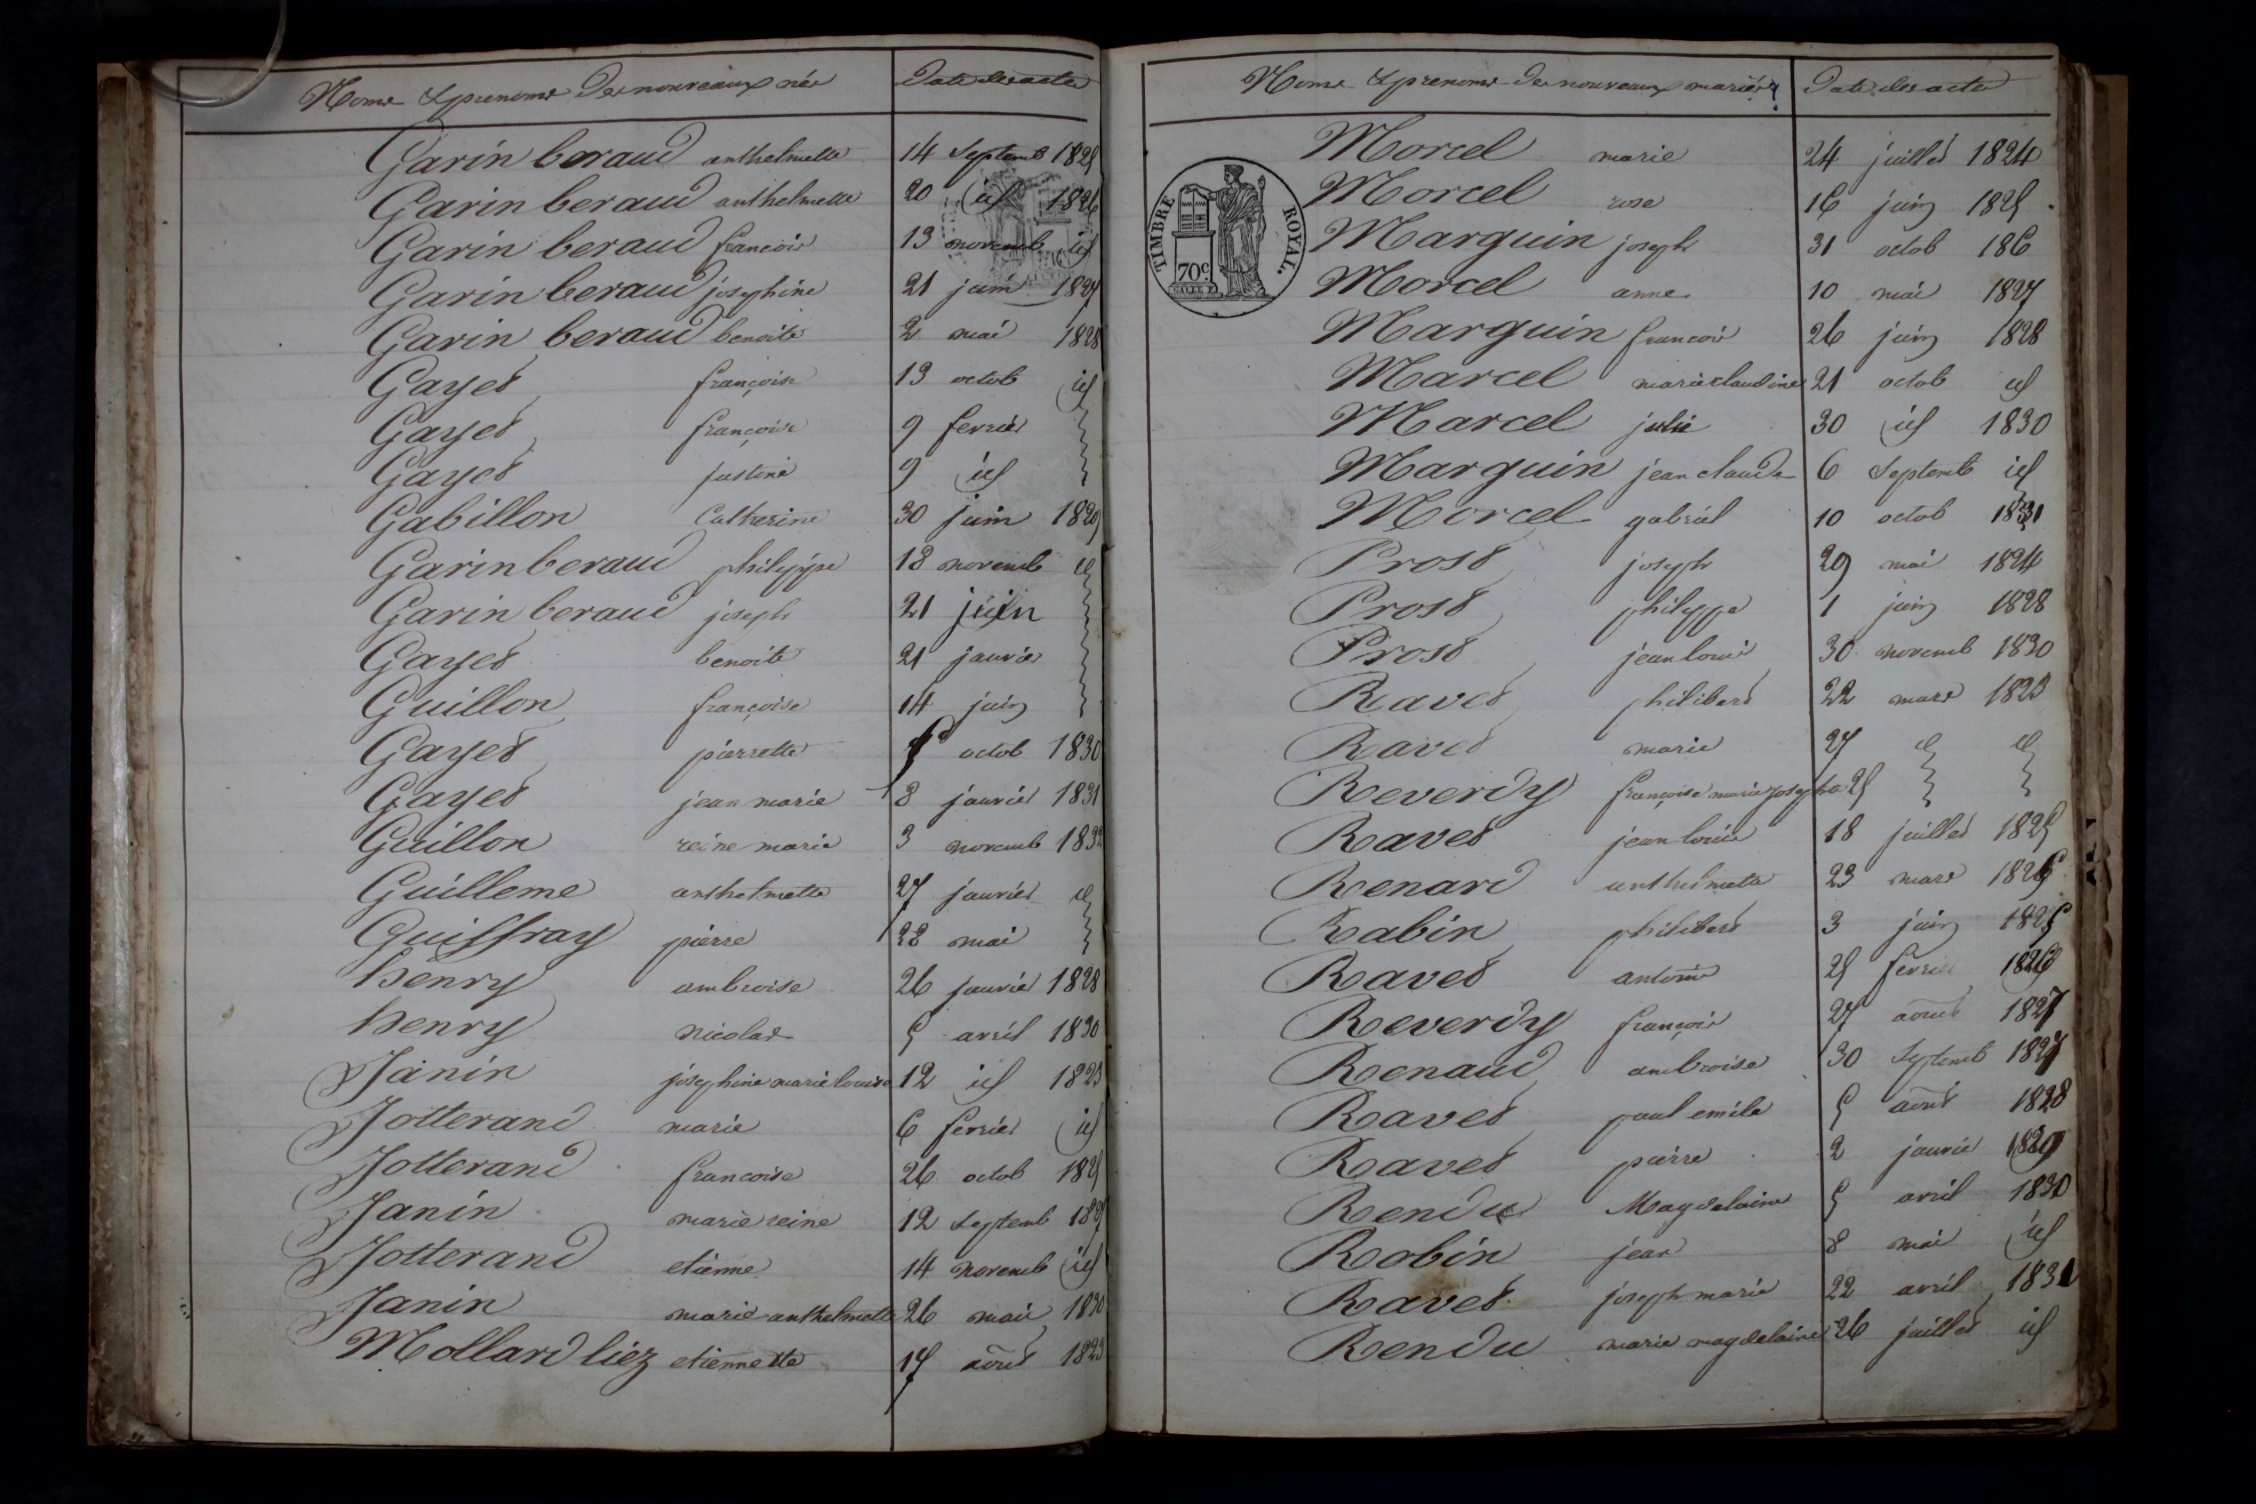 Noms & prenoms des nouveaux nés Date des actes
Garin beraud anthelmette 14 Septemb 1825
Garin beraud anthelmette 20 id 1826
Garin beraud francois 13 novemb id
Garin beraud josephine 21 juin 1827
Garin beraud benoite 2 mai 1828
Gayet françoise 13 octob id
Gayet françoise 9 fevrier
Gayet justine 9 id
Gabillon Catherine 30 juin 1829
Garin beraud philippe 18 novemb id
Garin beraud joseph 21 juin
Gayet benoite 21 janvier
Guillon françoise 14 juin
Gayet pierrette octob 1830
Gayet jean marie 8 janvier 1831
Guillon reine marie 3 novemb 1832
Guilleme anthelmette 27 janvier id
Guiffray pierre 28 mai
henry ambroise 26 janvier 1828
henry nicolas 5 avril 1830
Janin josephine marie louise 12 id 1823
Jotterand marie 6 fevrier id
Jotterand francoise 26 octob 1825
Janin marie reine 12 Septemb 1827
Jotterand etienne 14 novemb id
Janin marie anthelmette 26 mai 1830
Mollard liez etiennette 17 aout 1823
Noms & prenoms des nouveaux mariés Date des actes
TIMBRE ROYAL.
70c.
Morcel marie 24 juillet 1824
Morcel rose 16 juin 1825
Marguin joseph 31 octob 186
Morcel anne 10 mai 1827
Marguin francois 26 juin 1828
Marcel marie claudine 21 octob id
Marcel julie 30 id 1830
Marguin jean claude 6 Septemb id
Morcel gabriel 10 octob 1831
Prost joseph 29 mai 1824
Prost philippe 1 juin 1828
Prost jean louis 30 novemb 1830
Ravet philibert 22 mars 1823
Ravet marie 27 id id
Reverdy françoise marie josephte 25
Ravet jean louis 18 juillet 1825
Renard anthelmette 23 mars 1826
Rabin philibert 3 juin 1825
Ravet antoine 25 fevrier 1826
Reverdy françois 27 aout 1827
Renaud ambroise 30 Septemb 1827
Ravet paul emile 5 aout 1828
Ravet pierre 2 janvier 1829
Rendu Magdelaine 5 avril 1830
Robin jean 8 mai id
Ravet joseph marie 22 avril 1831
Rendu marie magdelaine 26 juillet id